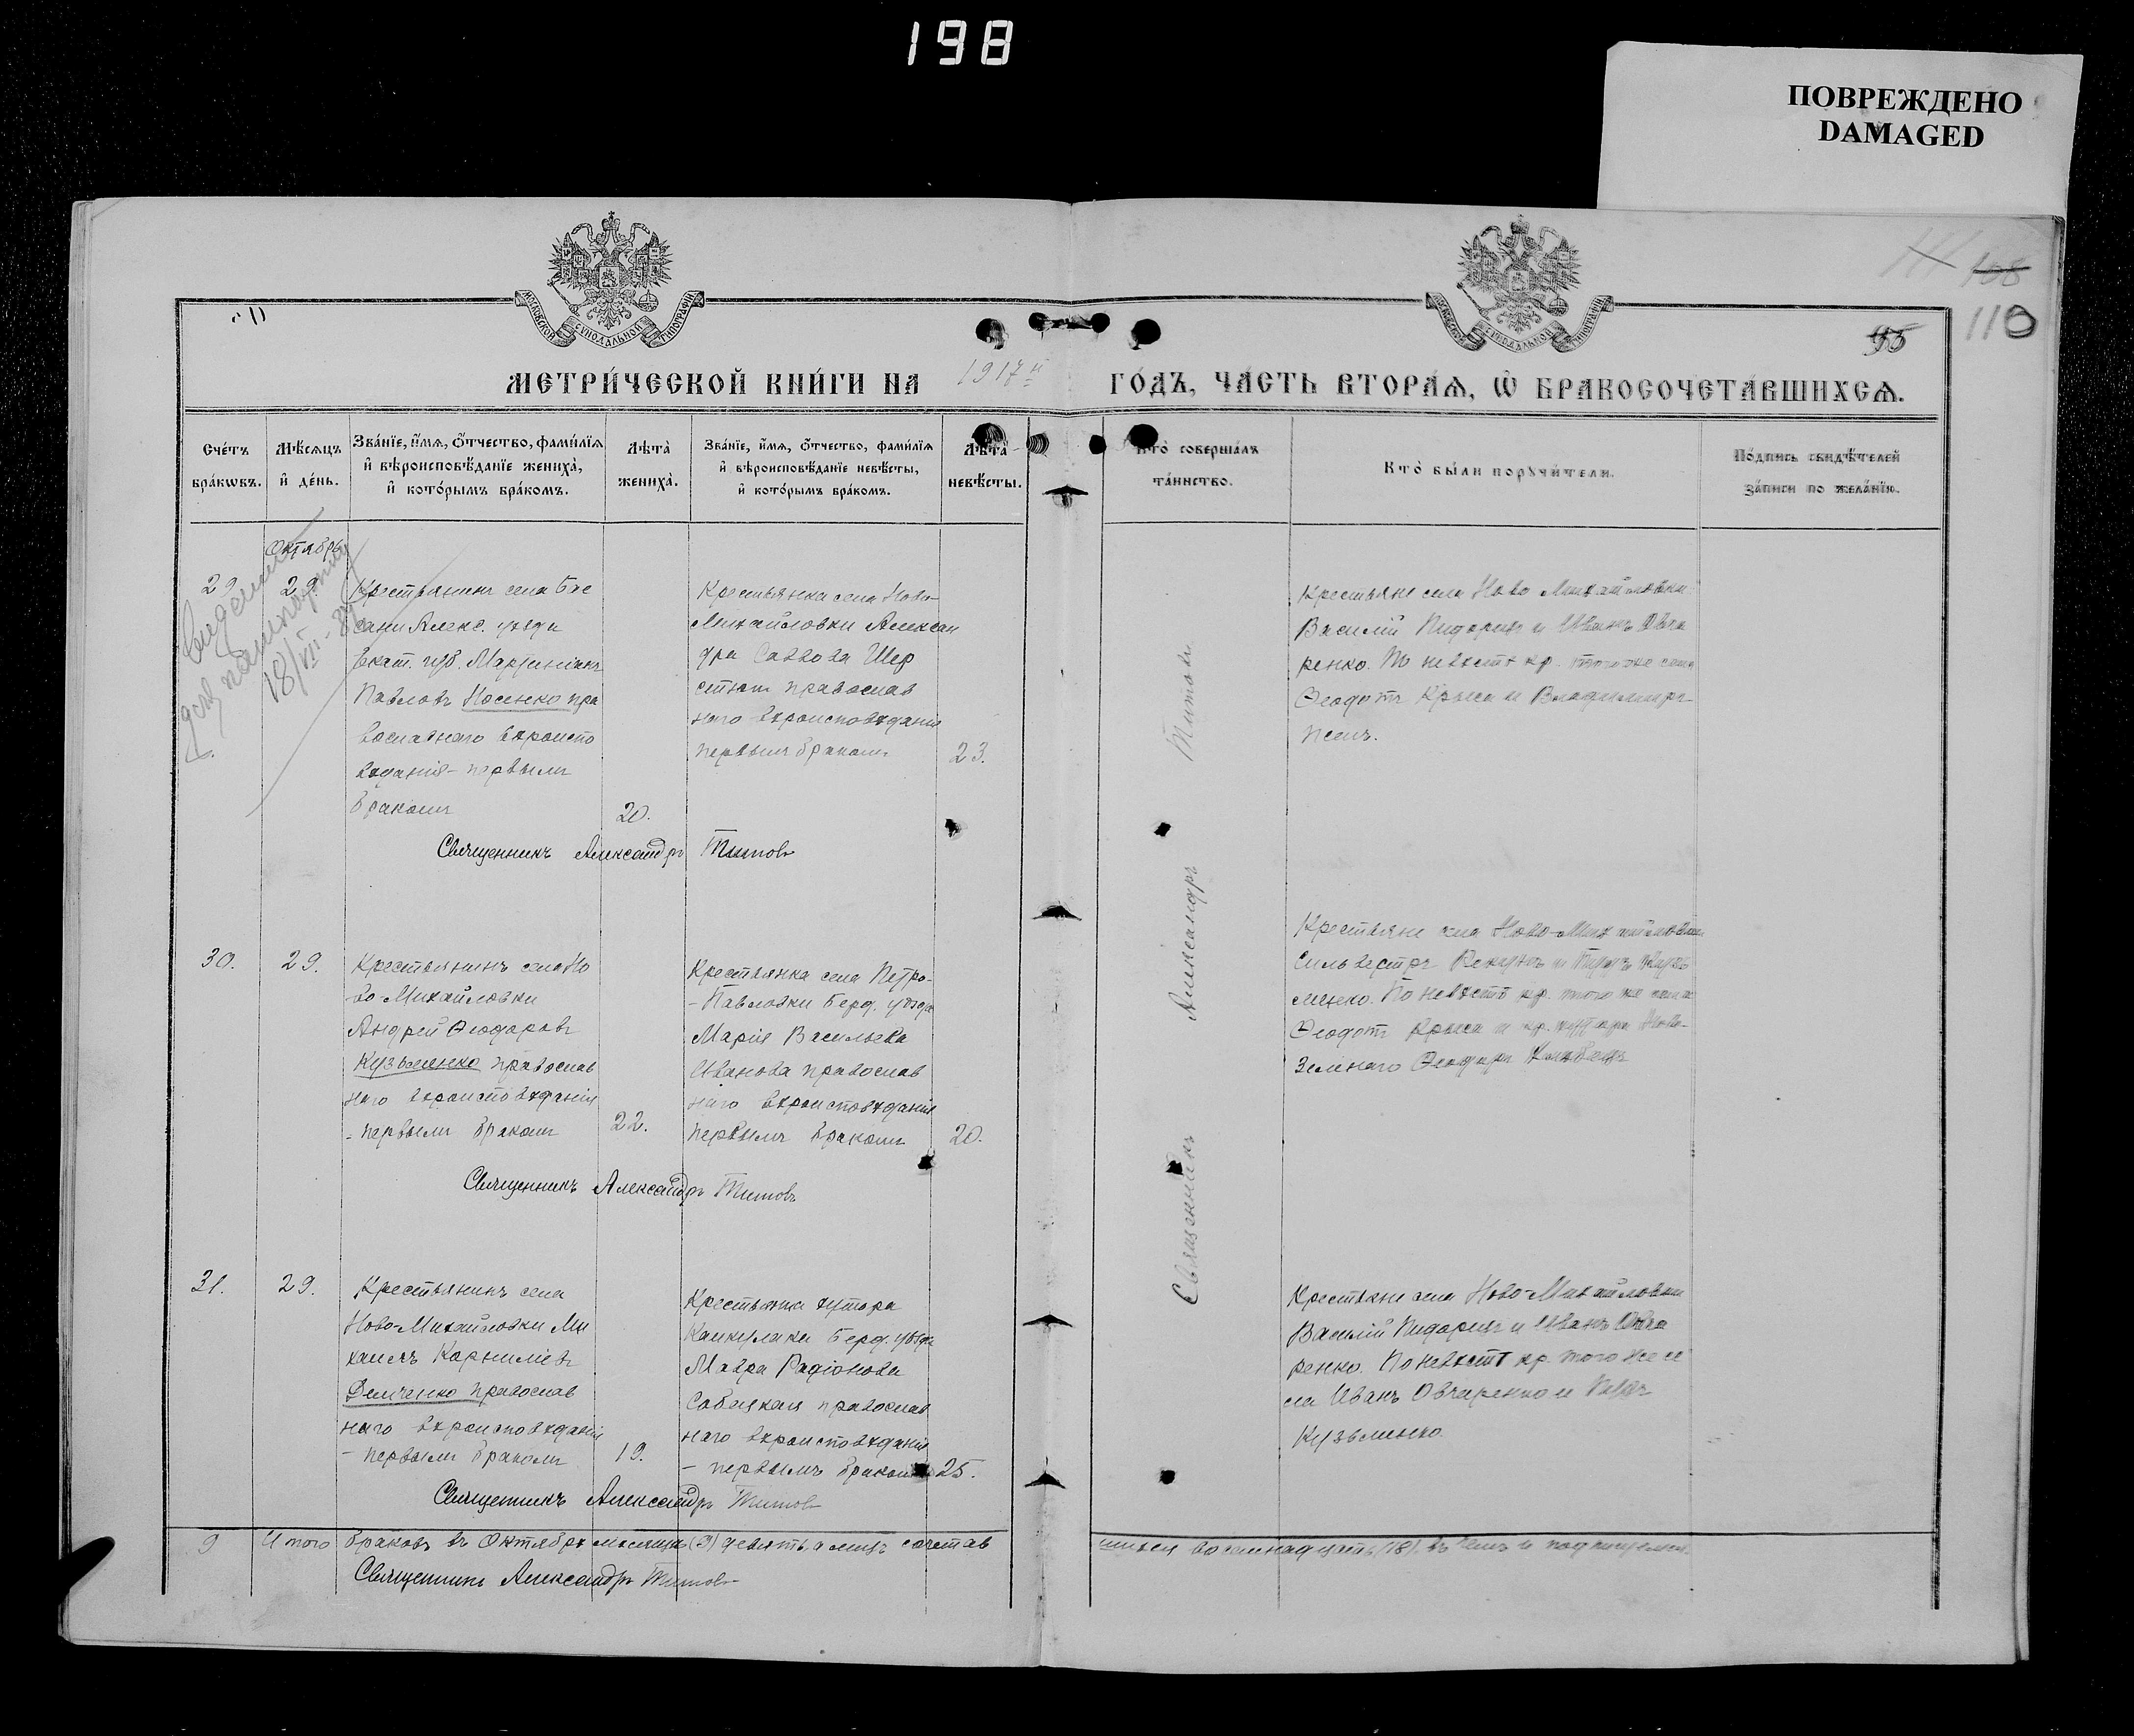 198
ПОВРЕЖДЕНО
DAMAGED
МОСКОВСКОЙ СѴНОДАЛЬНОЙ ТИПОГРАФІИ
МОСКОВСКОЙ СѴНОДАЛЬНОЙ ТИПОГРАФІИ
108
110
95
МЕТРИ́ЧЕСКОЙ КНИ́ГИ НА 1917й ГО́ДЪ, ЧА́СТЬ ВТОРА́Я, Ѡ БРАКОСОЧЕТА́ВШИХСѦ.
Сче́тъ бра́кѡвъ.
Мѣ́сѧцъ и҆ де́нь.
Зва́нїе, и҆́мѧ, ѻ҆́тчество, фами́лїѧ
и҆ вѣроисповѣ́данїе жениха̀,
и҆ кото́рымъ бра́комъ.
Лѣта̀ жениха̀.
Зва́нїе, и҆́мѧ, ѻ҆́тчество, фами́лїѧ
и҆ вѣроисповѣ́данїе невѣ́сты,
и҆ кото́рымъ бра́комъ.
Лѣта̀ невѣ́сты.
Кто̀ соверша́лъ та́инство.
Кто̀ бы́ли порꙋчи́тели.
По́дпись свидѣ́телей
за́писи по жела́нїю.
Октябрь
29
29.
Крестьянинъ села Бас
сани Алекс. уѣзда
Екат. губ. Мартиніанъ
Павловъ Носенко пра
вославнаго вѣроиспо
вѣданія - первымъ
бракомъ
20.
Крестьянка села Ново-
Михайловки Алексан
дра Саввова Шер
стюкъ православ
наго вѣроисповѣданія
первымъ бракомъ
23.
Крестьяне села Ново Михайловки
Василій Пидоринъ и Иванъ Овча
ренко. По невѣстѣ кр. того же села
Ѳеодотъ Крыса и Владимиръ
18/VII-
Священникъ Александръ Титовъ
30.
29.
Крестьянинъ села Но
во-Михайловки
Андрей Ѳеодоровъ
Кузьменко православ
наго вѣроисповѣданія
- первымъ бракомъ
22.
Крестьянка села Петро-
-Павловки Берд. уѣзда
Марія Васильева
Иванова православ
наго вѣроисповѣданія
первымъ бракомъ
20.
Крестьяне села Ново-Михайловки
Сильвестръ
менко. По невѣстѣ кр. того же села
Ѳеодотъ Крыса и кр. хутора Ново-
Зеленаго Ѳеодоръ
Священникъ Александръ Титовъ
31.
29.
Крестьянинъ села
Ново-Михайловки Ми
хаилъ Корниліевъ
Демченко православ
наго вѣроисповѣданія
- первымъ бракомъ
19.
Крестьянка хутора
Канкулака Берд. уѣзда
Мавра Радіонова
Собацкая православ
наго вѣроисповѣданія
- первымъ бракомъ
25.
Крестьяне села Ново-Михайловки
Василій Пидоринъ и Иванъ Овча
ренко. По невѣстѣ кр. того же се
ла Иванъ Овчаренко и
Кузьменко.
Священникъ Александръ Титовъ
Священникъ Александръ Титовъ
9 Итого браковъ въ Октябрѣ мѣсяцѣ (9) девять, а лицъ сочетав
шихся восемнадцать (18). въ чемъ и подписуемся.
Священникъ Александръ Титовъ